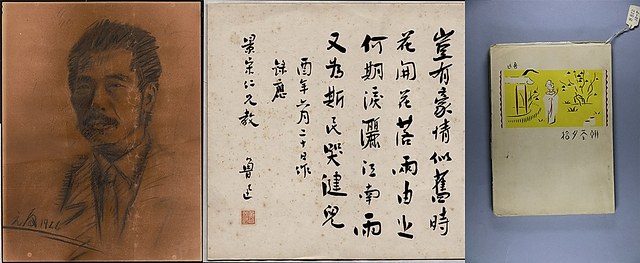 1926
豈有豪情似舊時
花開花落兩由之
何期淚灑江南雨
又為斯民哭健兒
酉年六月二十日作
錄應
景宋仁兄教
魯迅
朝花夕拾